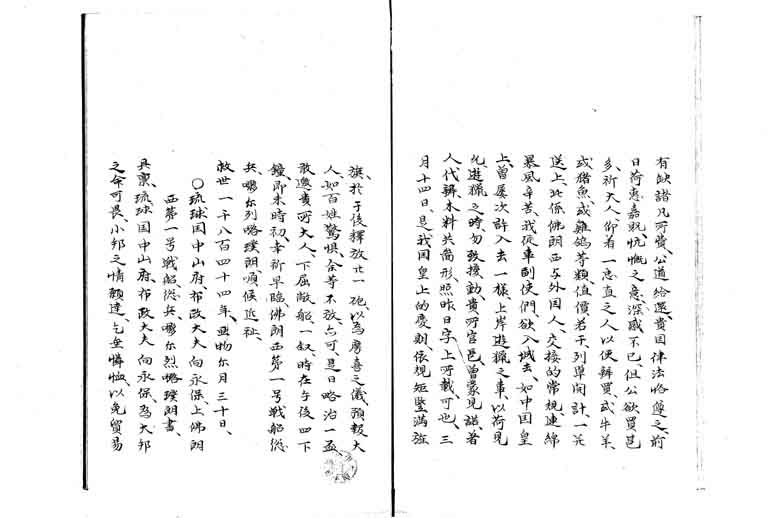 有缺諸凡所費、公道給還、貴国律法恪遵之、前
日荷惠嘉貺、忼慨之意、深感不已、但公欲買邑
多、祈大人、仰着一忠直之人、以便辦買、或牛羊、
或猪魚、或雞鴿等類、值價若干、列單開計、一并
送上、此係佛朗西与外国人、交接的常規、連綿
暴風辛苦、我從軍副使們、欲入城去、如中国皇
上、曽屡次許入去一樣、上岸遊獵之事、以荷見
允、遊獵之時、勿致擾動、貴所官邑、曽蒙見諾、着
人代辦木料共茼形、照昨日字上所載可也、三
月十四日、是我国皇上的慶期、依規矩竪満旅
旗、於于後釋放廿一砲、以為房喜之儀、預報大
人、如百姓驚惧、余等不放亦可、是日略治一盃、
敢邀貴所大人、下屈敝船一叙、時在午後四下
鐘、即未時初、幸祈早臨、佛朗西第一号戦船総
兵、嘮尔列略璞朗頓候近祉、
救世一千八百四十四年、亜物尔月三十日、
〇琉球国中山府布政大夫向永保、上佛朗
西第一号戦船総兵嘮尔烈略璞朗書、
具稟、琉球国中山府、布政大夫向永保、為大邦
之命可畏、小邦之情難達、乞垂憐恤、以免貿易